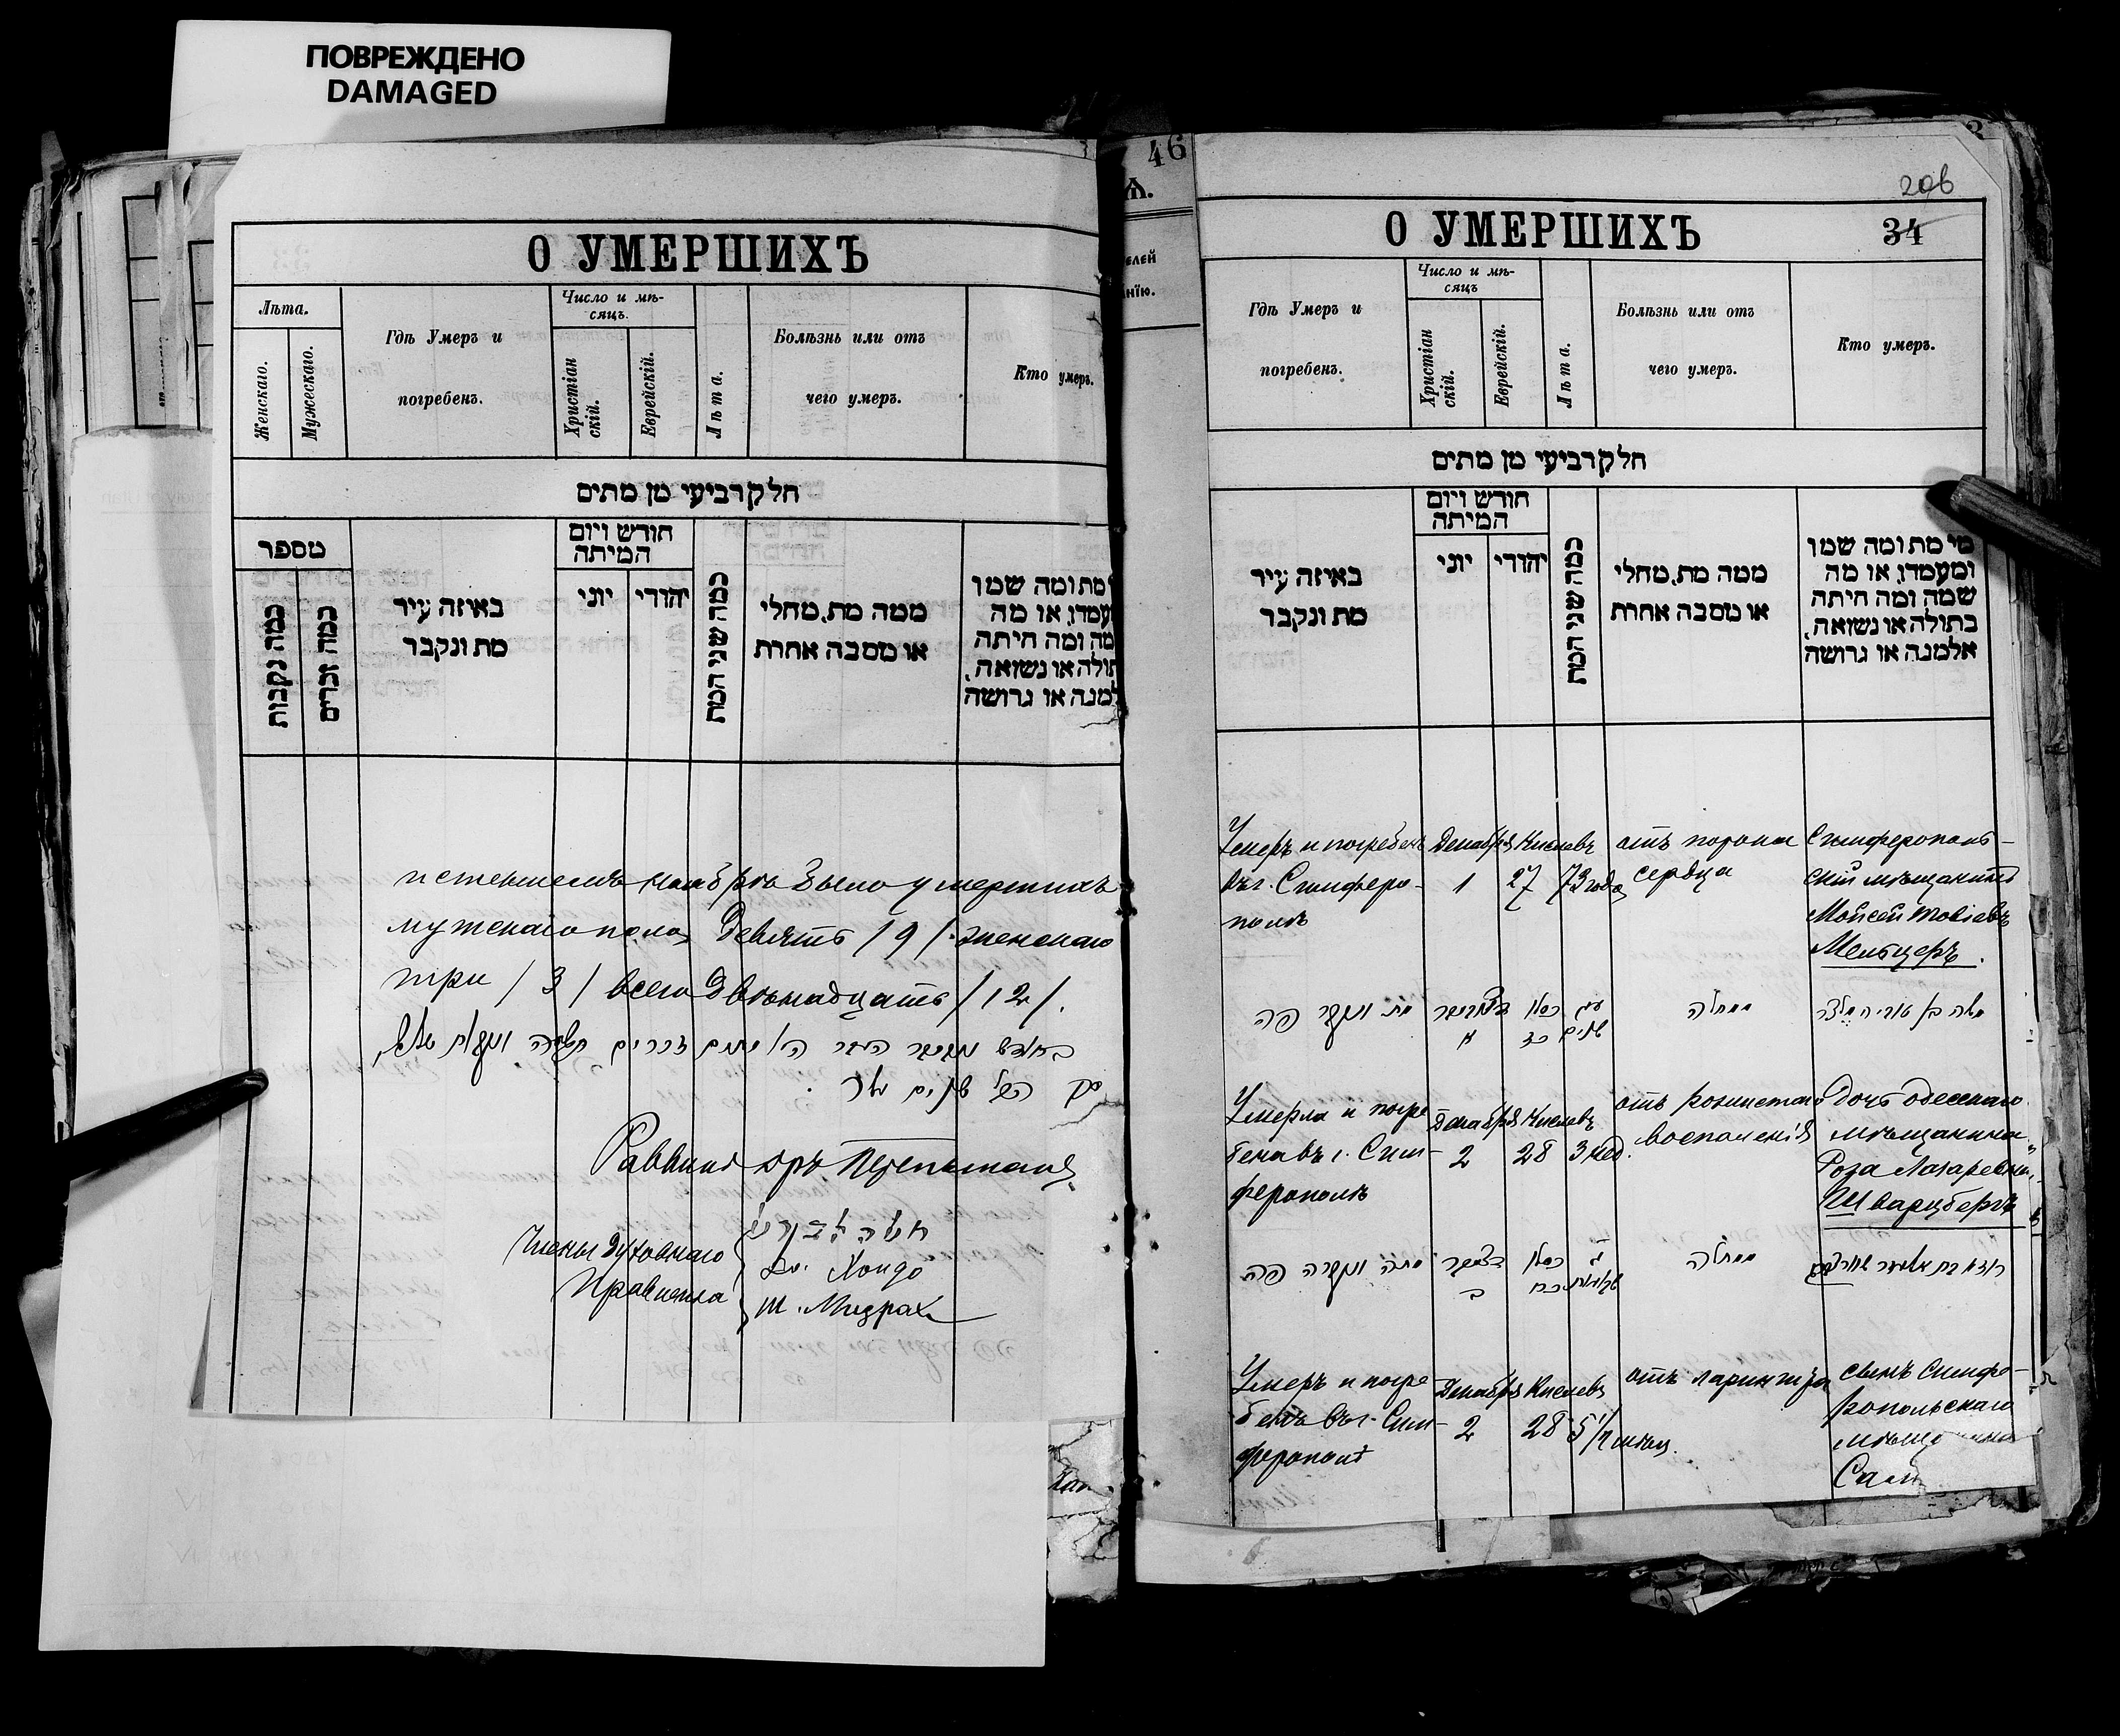 ПОВРЕЖДЕНО
DAMAGED
О УМЕРШИХЪ
Лѣта.
Женскаго.
Мужескаго.
Гдѣ Умеръ и
погребенъ.
Число и мѣ-
сяцъ.
Христіан
скій.
Еврейскій.
Лѣта.
Болѣзнь или отъ
чего умеръ.
Кто умеръ.
חלק רביעי מן מתים
מספר
כמה נקבות
כמה זכרים
באיזה עיר
מת ונקבר
חודש ויום
המיתה
יוני
יהודי
כמה שני המת
ממה מת, מחלי
או מסבה אחרת
מת ומה שמו
עמדו, או מה
מה ומה היתה
תולה או נשואה,
למנה או גרושה
истекшемъ ноябрѣ было умершихъ
мужскаго пола девять /9/ женскаго
три /3/ всего двѣнадцать /12/.
Раввинъ
Члены Духовнаго
Правленія
Хондо
Ш. Мизрах
46
Ѧ.
елей
нію.
206
О УМЕРШИХЪ
34
Гдѣ Умеръ и
погребенъ.
Число и мѣ-
сяцъ
Христіан
скій.
Еврейскій.
Лѣта.
Болѣзнь или отъ
чего умеръ.
Кто умеръ.
חלק רביעי מן מתים
באיזה עיר
מת ונקבר
חודש ויום
המיתה
יוני
יהודי
כמה שני המת
ממה מת, מחלי
או מסבה אחרת
מי מת ומה שמו
ומעמדו, או מה
שמה ומה היתה
בתולה או נשואה,
אלמנה או גרושה
Умеръ и погребенъ
въ г. Симферо-
полѣ
Декабря
1
Кислевъ
27
73 года
отъ порока
сердца
Симферополь-
скій мѣщанинъ
Мойсей Товіевъ
Мельцеръ.
מת ונקבר פה
א
כסלו
כז
מחלה
משה בן טוביה מלצר
Умерла и погре
бена въ г. Сим-
ферополѣ
Декабря
2
Кислевъ
28
3 нед.
отъ
воспаленія
Дочь одесскаго
мѣщанина
Роза Лазаревна
Шварцбергъ
מתה ונקברה פה
דצמבר
ב
כסלו
כח
ג
מחלה
Умеръ и погре
бенъ въ г. Сим-
ферополѣ
Декабря
2
Кислевъ
28
5 1/2 мѣсяц.
отъ ларингита
сынъ Симфе-
ропольскаго